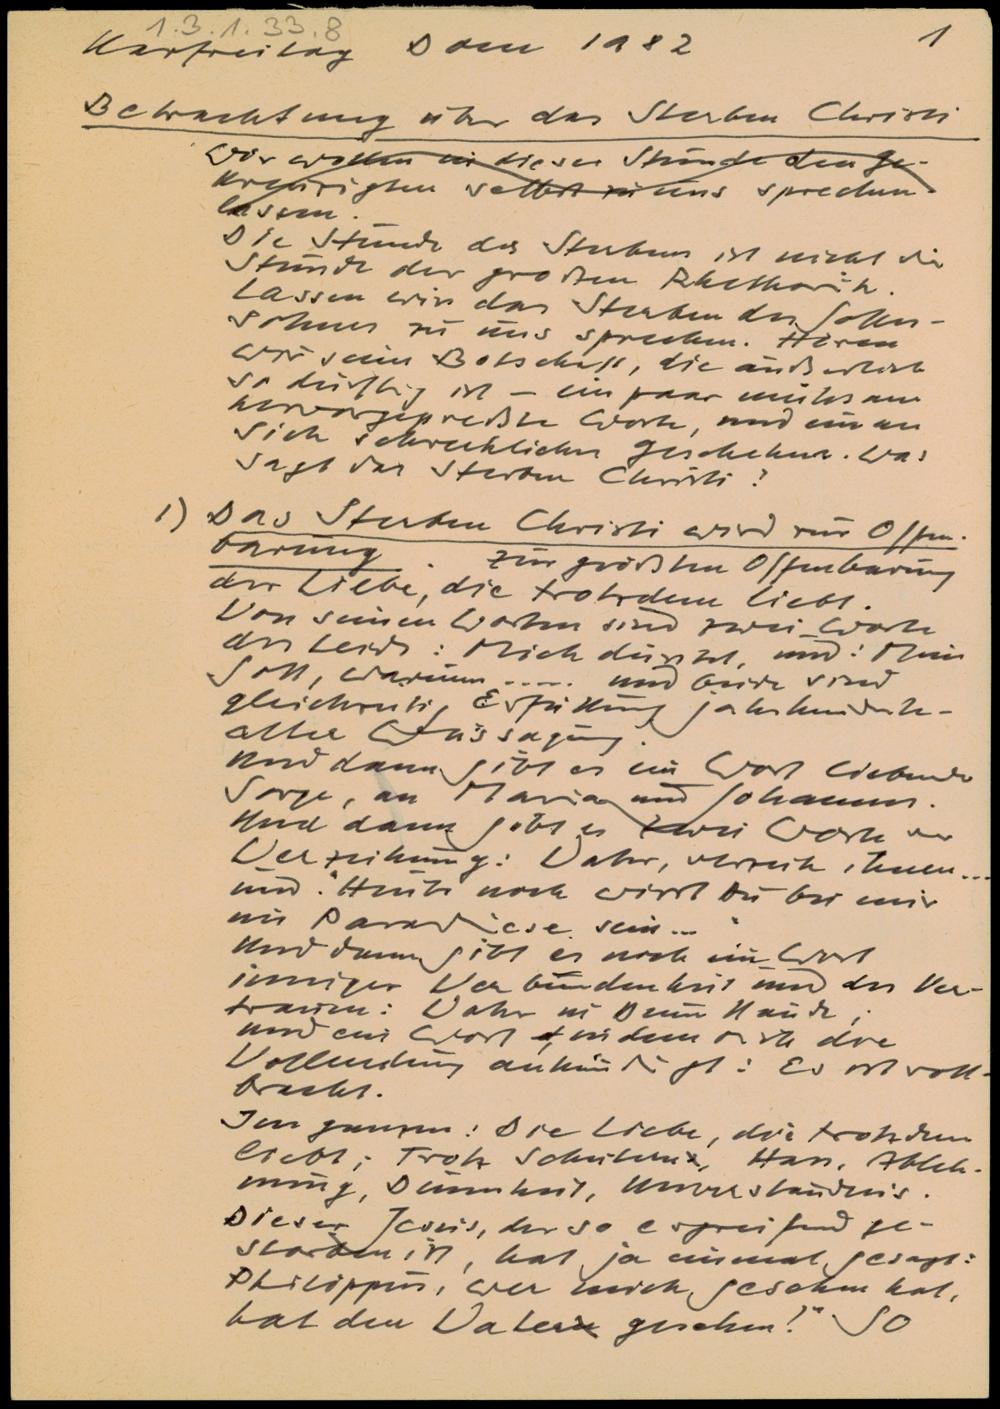 1.3.1.33.8
Karfreitag Dom 1982 1
Betrachtung über das Sterben Christi
Wir wollen in dieser Stunde den Ge-
kreuzigten selbst zu uns sprechen
lassen.
Die Stunde des Sterbens ist nicht die
Stunde der großen Rhethorik.
Lassen wir das Sterben des Gottes-
sohnes zu uns sprechen. Hören
wir seine Botschaft, die äußerlich
so dürftig ist – ein paar mühsam
hervorgepreßte Worte, und ein an
sich schreckliches Geschehen. Was
sagt das Sterben Christi?
1) Das Sterben Christi wird zur Offen-
barung. Zur größten Offenbarung
der Liebe, die trotzdem liebt.
Von seinen Worten sind zwei Worte
des Leids: Mich dürstet, und: Mein
Gott, warum ..... und beide sind
gleichzeitig Erfüllung jahrhunderte-
alter Aussagung.
Und dann gibt es ein Wort liebender
Sorge, an Maria und Johannes.
Und dann gibt es zwei Worte der
Verzeihung: Vater, verzeih ihnen...
und: "Heute noch wirst Du bei mir
im Paradiese sein..."
Und dann gibt es noch ein Wort
inniger Verbundenheit und des Ver-
trauens: Vater in Deine Hände,
und ein Wort, in dem sich die
Vollendung ankündigt: Es ist voll-
bracht.
Im ganzen: Die Liebe, die trotzdem
liebt; Trotz Schmerz, Hass, Ableh-
nung, Dummheit, Unverständnis.
Dieser Jesus, der so ergreifend ge-
storben ist, hat ja einmal gesagt:
Philippus, wer mich gesehen hat,
hat den Vater gesehen!" So